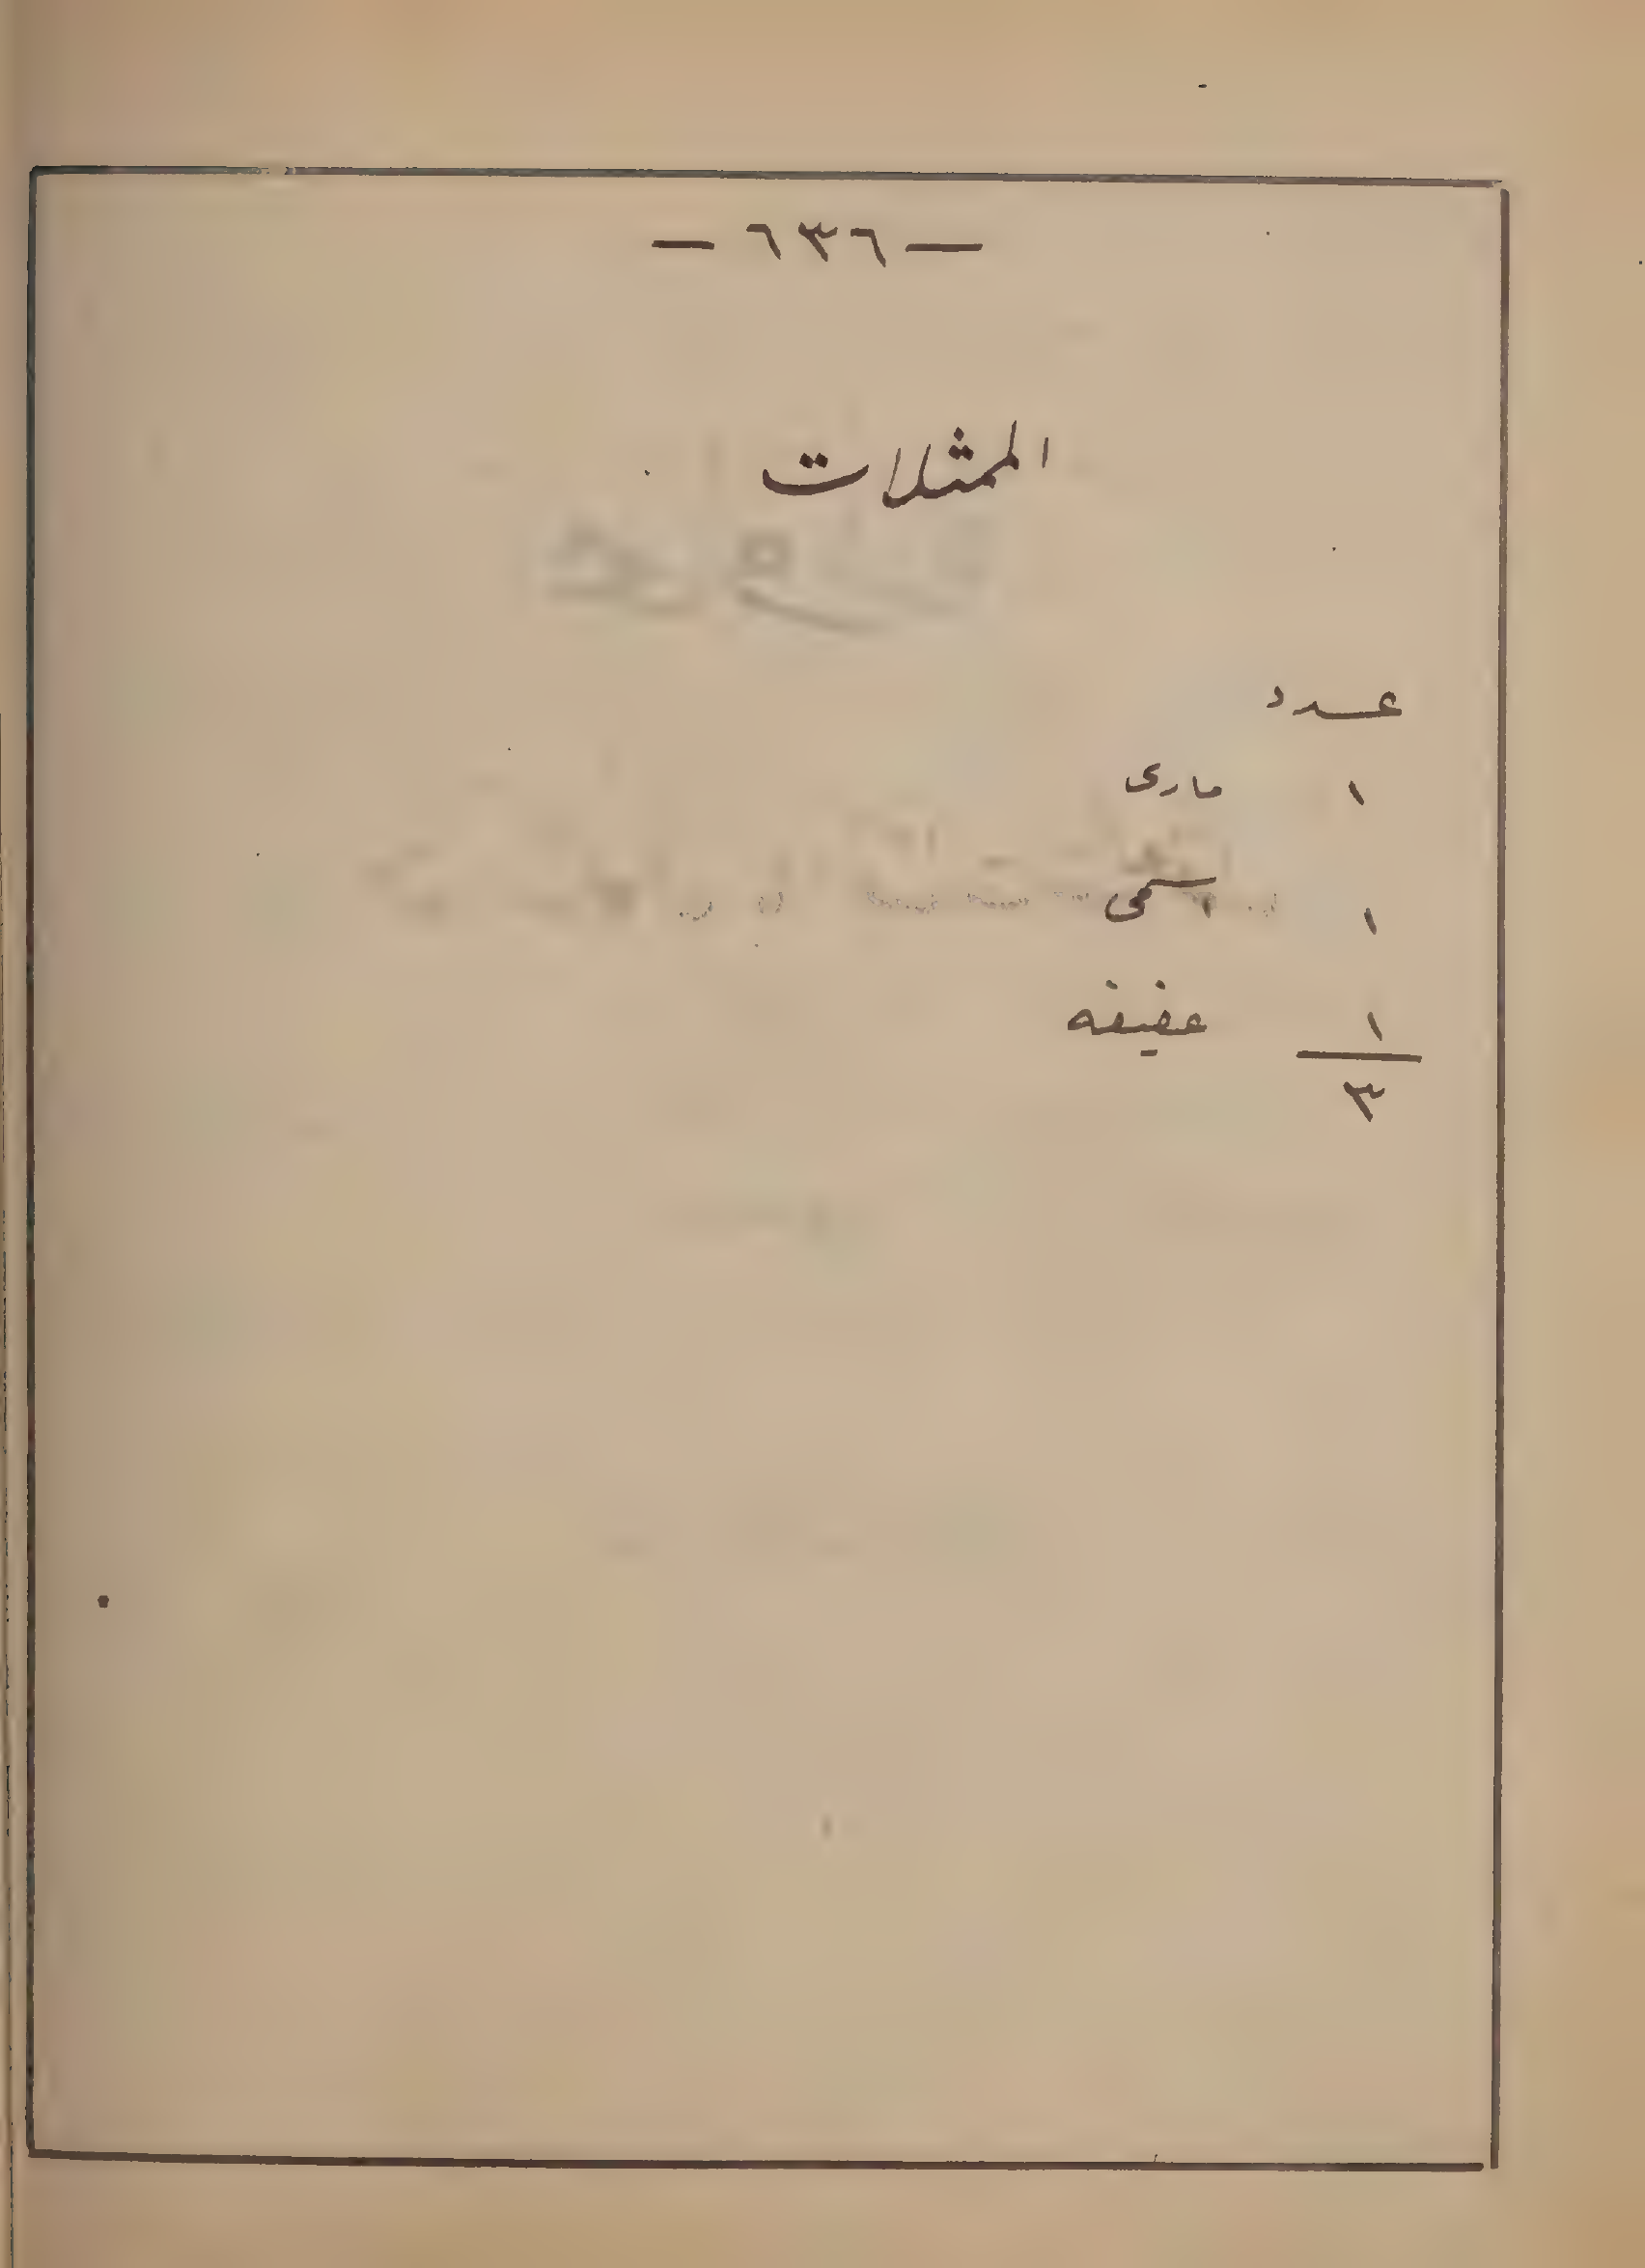 — ٦٣٦ —
الممثلات
عدد
١ مارى
١ سلمى
١ عفيفه
٣